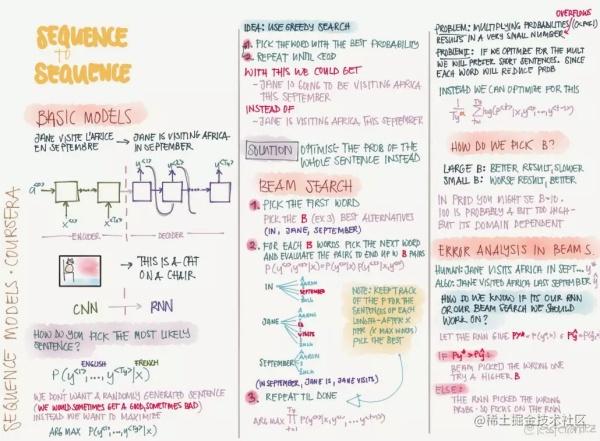 SEQUENCE
to
SEQUENCE
BASIC MODELS
JANE VISITE L'AFRICE
EN SEPTEMBRE
→ JANE IS VISITING AFRICA
IN SEPTEMBER
y<1> y<2> y<Ty>
a<0>
x<1> x<Tx>
ENCODER DECODER
→ THIS IS A CAT
ON A CHAIR
CNN → RNN
HOW DO YOU PICK THE MOST LIKELY
SENTENCE?
ENGLISH FRENCH
P(y<1>,...,y<Ty>|x)
WE DON'T WANT A RANDOMLY GENERATED SENTENCE
(WE WOULD SOMETIMES GET A GOOD, SOMETIMES BAD)
INSTEAD WE WANT TO MAXIMIZE
ARG MAX P(y<1>,...,y<Ty>|x)
SEQUENCE MODELS · COURSERA
IDEA: USE GREEDY SEARCH
1. PICK THE WORD WITH THE BEST PROBABILITY
2. REPEAT UNTIL <EOD
WITH THIS WE COULD GET
- JANE IS GOING TO BE VISITING AFRICA
THIS SEPTEMBER
INSTEAD OF
- JANE IS VISITING AFRICA THIS SEPTEMBER
SOLUTION OPTIMISE THE PROB OF THE
WHOLE SENTENCE INSTEAD
BEAM SEARCH
1. PICK THE FIRST WORD
PICK THE B (EX 3) BEST ALTERNATIVES
(IN, JANE, SEPTEMBER)
2. FOR EACH B WORDS PICK THE NEXT WORD
AND EVALUATE THE PAIRS TO END UP W B PAIRS
P(y<1>,y<2>|x)=P(y<1>|x)P(y<2>|x,y<1>)
IN
SEPTEMBER
JANE
IS
VISITS
SEPTEMBER
NOTE: KEEP TRACK
OF THE P FOR THE
SENTENCES OF EACH
LENGTH - AFTER X
(X MAX WORDS)
PICK THE BEST
(IN SEPTEMBER, JANE IS, JANE VISITS)
3. REPEAT TIL DONE
ARG MAX
OVERFLOWS
PROBLEM: MULTIPLYING PROBABILITIES
RESULTS IN A VERY SMALL NUMBER
PROBLEM: IF WE OPTIMIZE FOR THE MULT
WE WILL PREFER SHORT SENTENCES. SINCE
EACH WORD WILL REDUCE PROB
INSTEAD WE CAN OPTIMIZE FOR THIS
HOW DO WE PICK B?
LARGE B: BETTER RESULT, SLOWER
SMALL B: WORSE RESULT, BETTER
IN PROD YOU MIGHT SE B=10.
100 IS PROBABLY A BIT TOO HIGH -
BUT ITS DOMAIN DEPENDENT
ERROR ANALYSIS IN BEAM S.
HUMAN: JANE VISITS AFRICA IN SEPT...
ALGO: JANE VISITED AFRICA LAST SEPTEMBER
HOW DO WE KNOW IF ITS OUR RNN
OR OUR BEAM SEARCH WE SHOULD
WORK ON?
LET THE RNN GIVE
IF
BEAM PICKED THE WRONG ONE
TRY A HIGHER B
ELSE:
THE RNN PICKED THE WRONG
PROB - SO PICK ON THE RNN
@稀土掘金技术社区